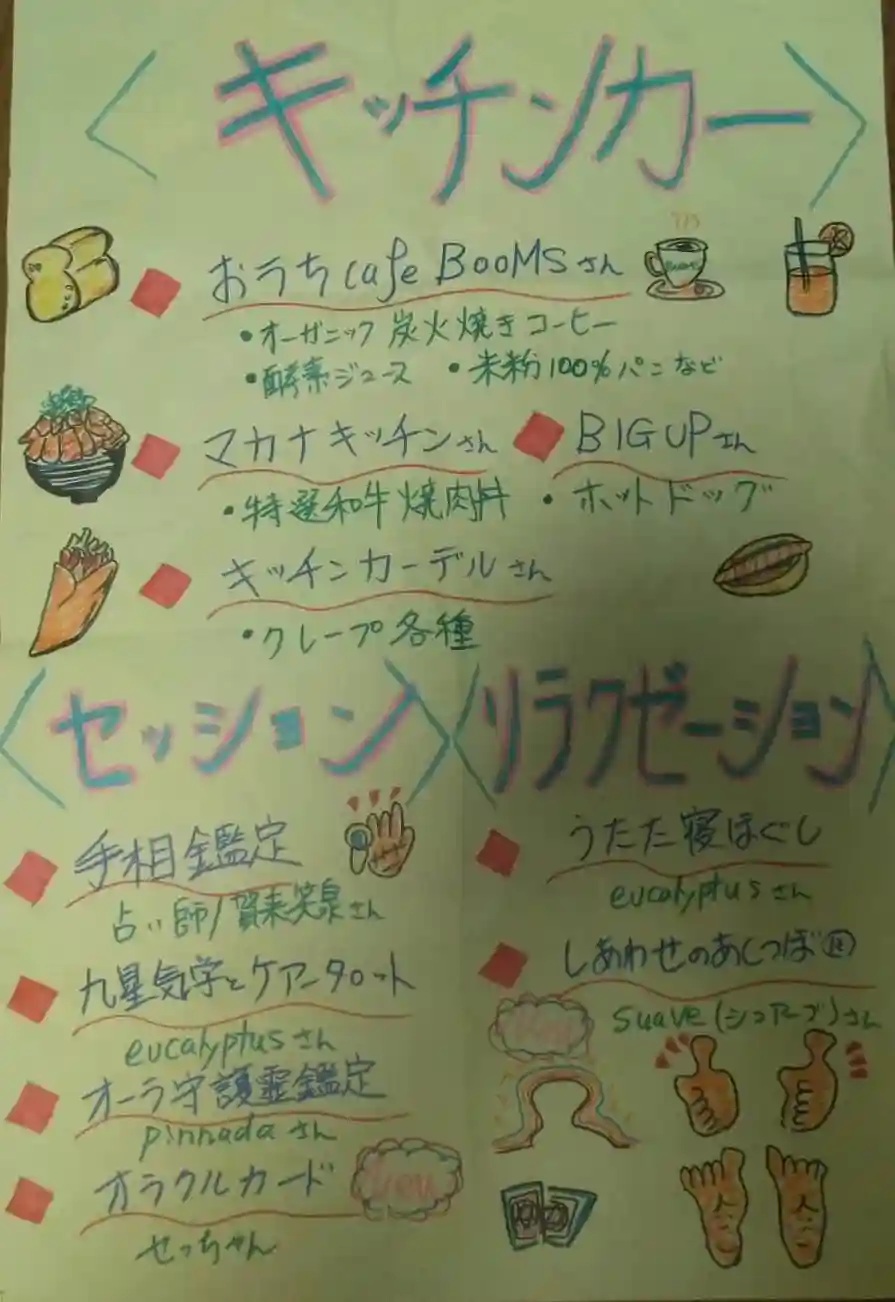 〈キッチンカー〉
おうち cafe BOOMS さん
・オーガニック 炭火焼きコーヒー
・酵素ジュース ・米粉100%パンなど
マカナキッチンさん
BIG UPさん
・特選和牛焼肉丼
・ホットドッグ
キッチンカーデルさん
・クレープ各種
〈セッション〉
〈リラクゼーション〉
手相鑑定
占い師/賀来笑泉さん
九星気学とケアンタロット
eucalyptusさん
オーラ守護霊鑑定
pinnadaさん
オラクルカード
せっちゃん
うたた寝ほぐし
eucalyptusさん
しあわせのあしつぼ
suave(シュアーブ)さん